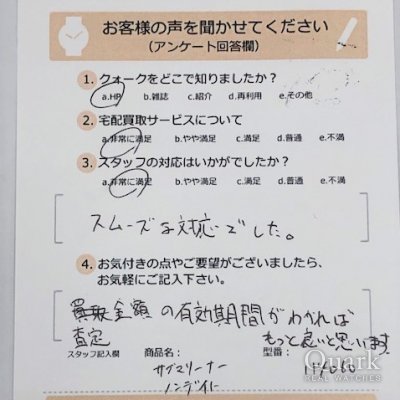 お客様の声を聞かせてください
(アンケート回答欄)
1. クォークをどこで知りましたか?
a.HP b.雑誌 c.紹介 d.再利用 e.その他
2. 宅配買取サービスについて
a.非常に満足 b.やや満足 c.満足 d.普通 e.不満
3. スタッフの対応はいかがでしたか?
a.非常に満足 b.やや満足 c.満足 d.普通 e.不満
スムーズな対応でした。
4. お気付きの点やご要望がございましたら、
お気軽にご記入下さい。
金額の有効期間がわかれば
査定 もっと良いと思います。
スタッフ記入欄 商品名: 型番:
サブマリーナー 114060
ノンデイト
Quark
REAL WATCHES